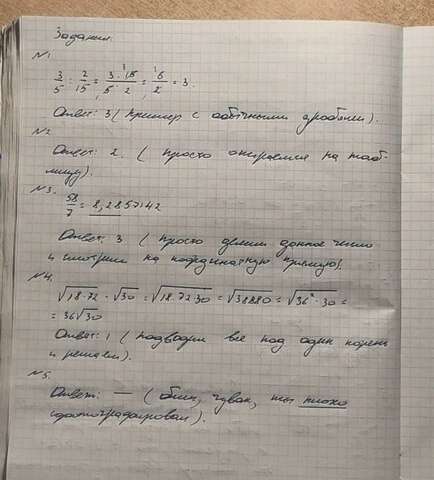 Задания.
№1
3/5 : 2/15 = 3·15/5·2 = 6/2 = 3.
Ответ: 3 (пример с обычными дробями).
№2
Ответ: 2. (просто опираемся на таб-
лицу).
№3.
58/7 = 8,2857142
Ответ: 3 (просто делим данное число
и смотрим на координатную прямую).
№4.
√18·72 · √30 = √18·72·30 = √38880 = √36²·30 =
= 36√30
Ответ: 1 (подводим все под один корень
и решаем).
№5.
Ответ: — (блин, чувак, ты плохо
сфотографировал).